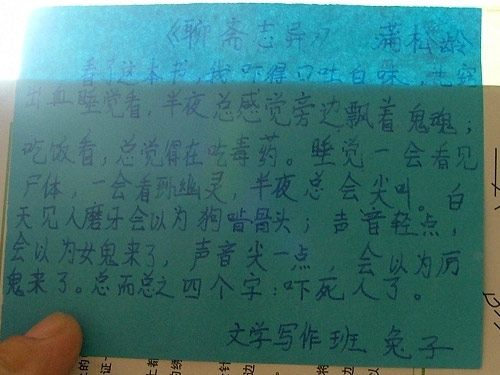 《聊斋志异》 蒲松龄
看这本书,我吓得口吐白沫,七窍
出血睡觉看,半夜总感觉旁边飘着鬼魂;
吃饭看,总觉得在吃毒药。睡觉一会看见
尸体,一会看到幽灵,半夜总会尖叫。白
天见人磨牙会以为狗啃骨头;声音轻点,
会以为女鬼来了,声音尖一点,会以为厉
鬼来了。总而总之四个字:吓死人了。
文学写作班 兔子